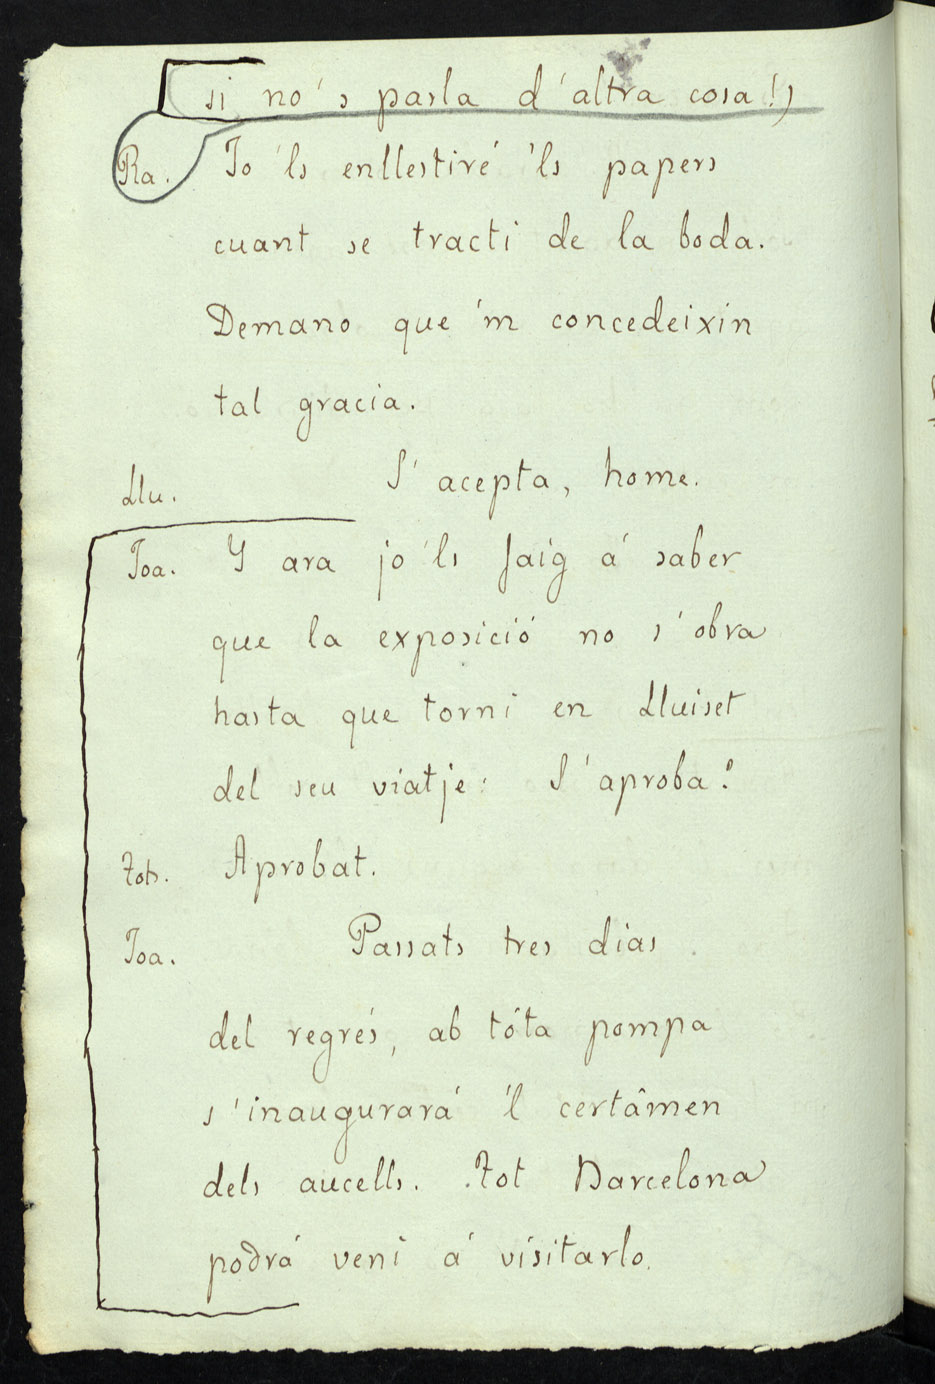 si no 's parla d' altra cosa!)
Ra. Jo 'ls enllestiré 'ls papers
cuant se tracti de la boda.
Demano que 'm concedeixin
tal gracia.
Llu. S' acepta, home.
Joa. Y ara jo 'ls faig á saber
que la exposició no s' obra
hasta que torni en Lluiset
del seu viatje: S' aproba?
Tots. Aprobat.
Joa. Passats tres dias
del regrés, ab tóta pompa
s' inaugurará 'l certâmen
dels aucells. Tot Barcelona
podrá vení á visitarlo.